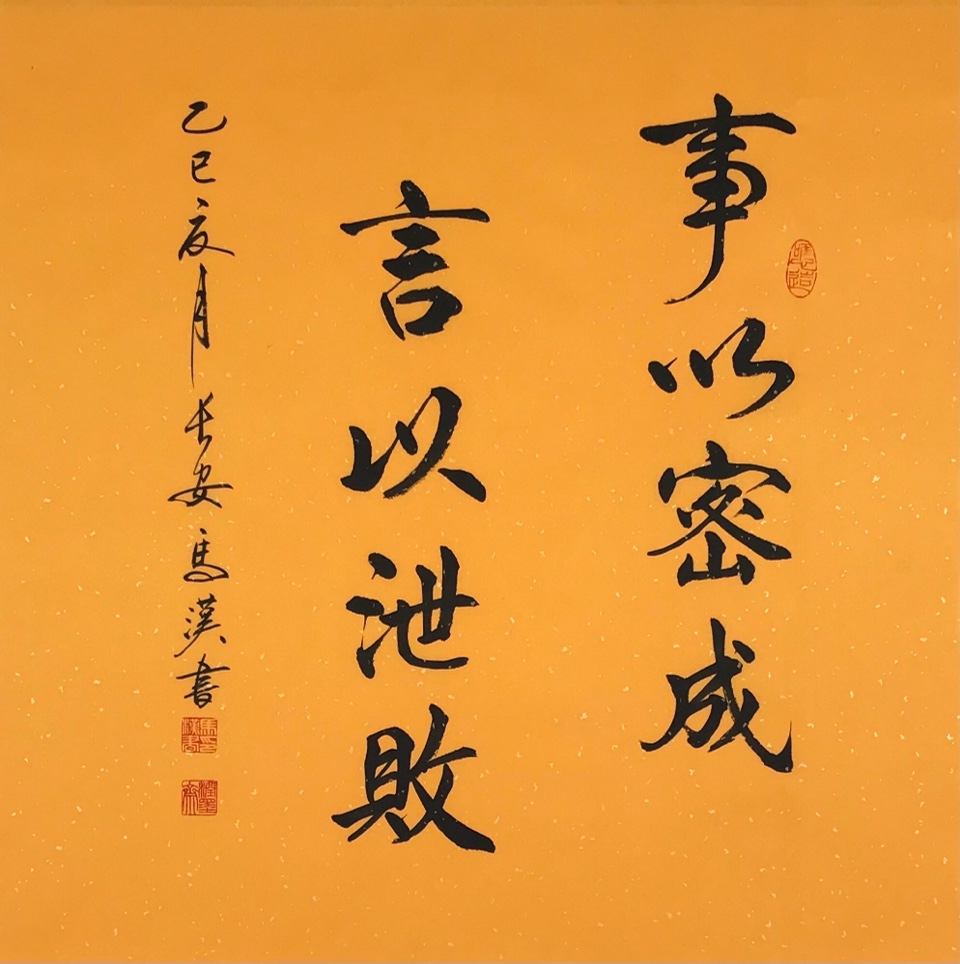 事以密成
言以泄敗
乙巳亥月長安馬漢書